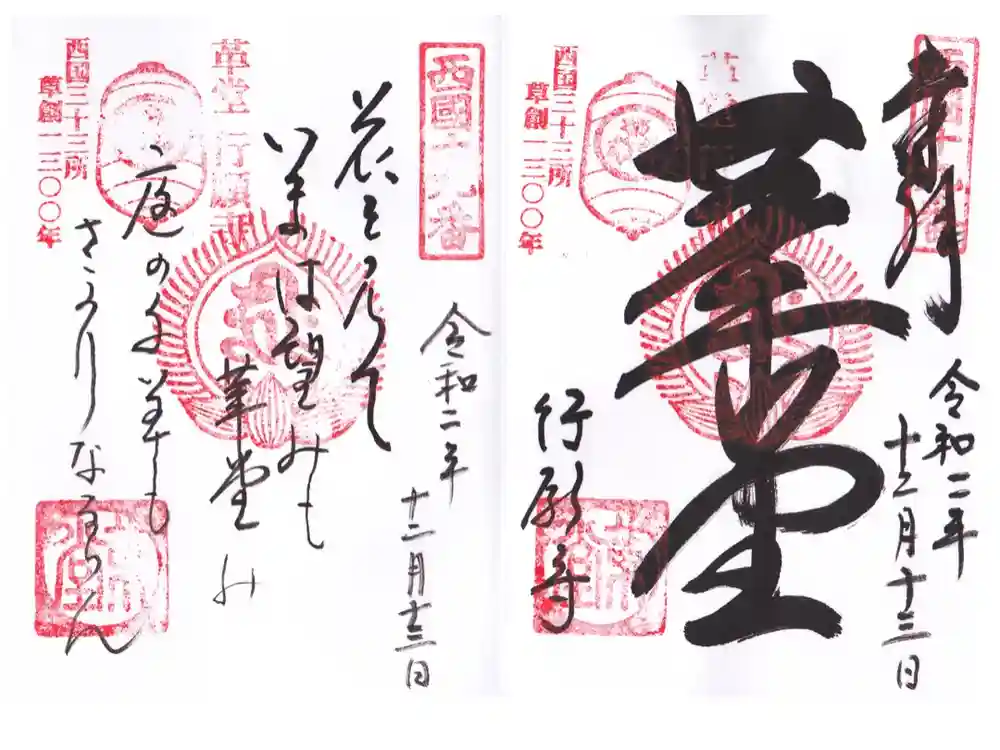 奉拝
令和二年
十二月十三日
革堂
行願寺
西国三十三所
草創一三〇〇年
西國十九番
令和二年
十二月十三日
花を見て
いまは望みも
革堂の
庭の千草も
さかりなるらん
革堂 行願寺
西国三十三所
草創一三〇〇年